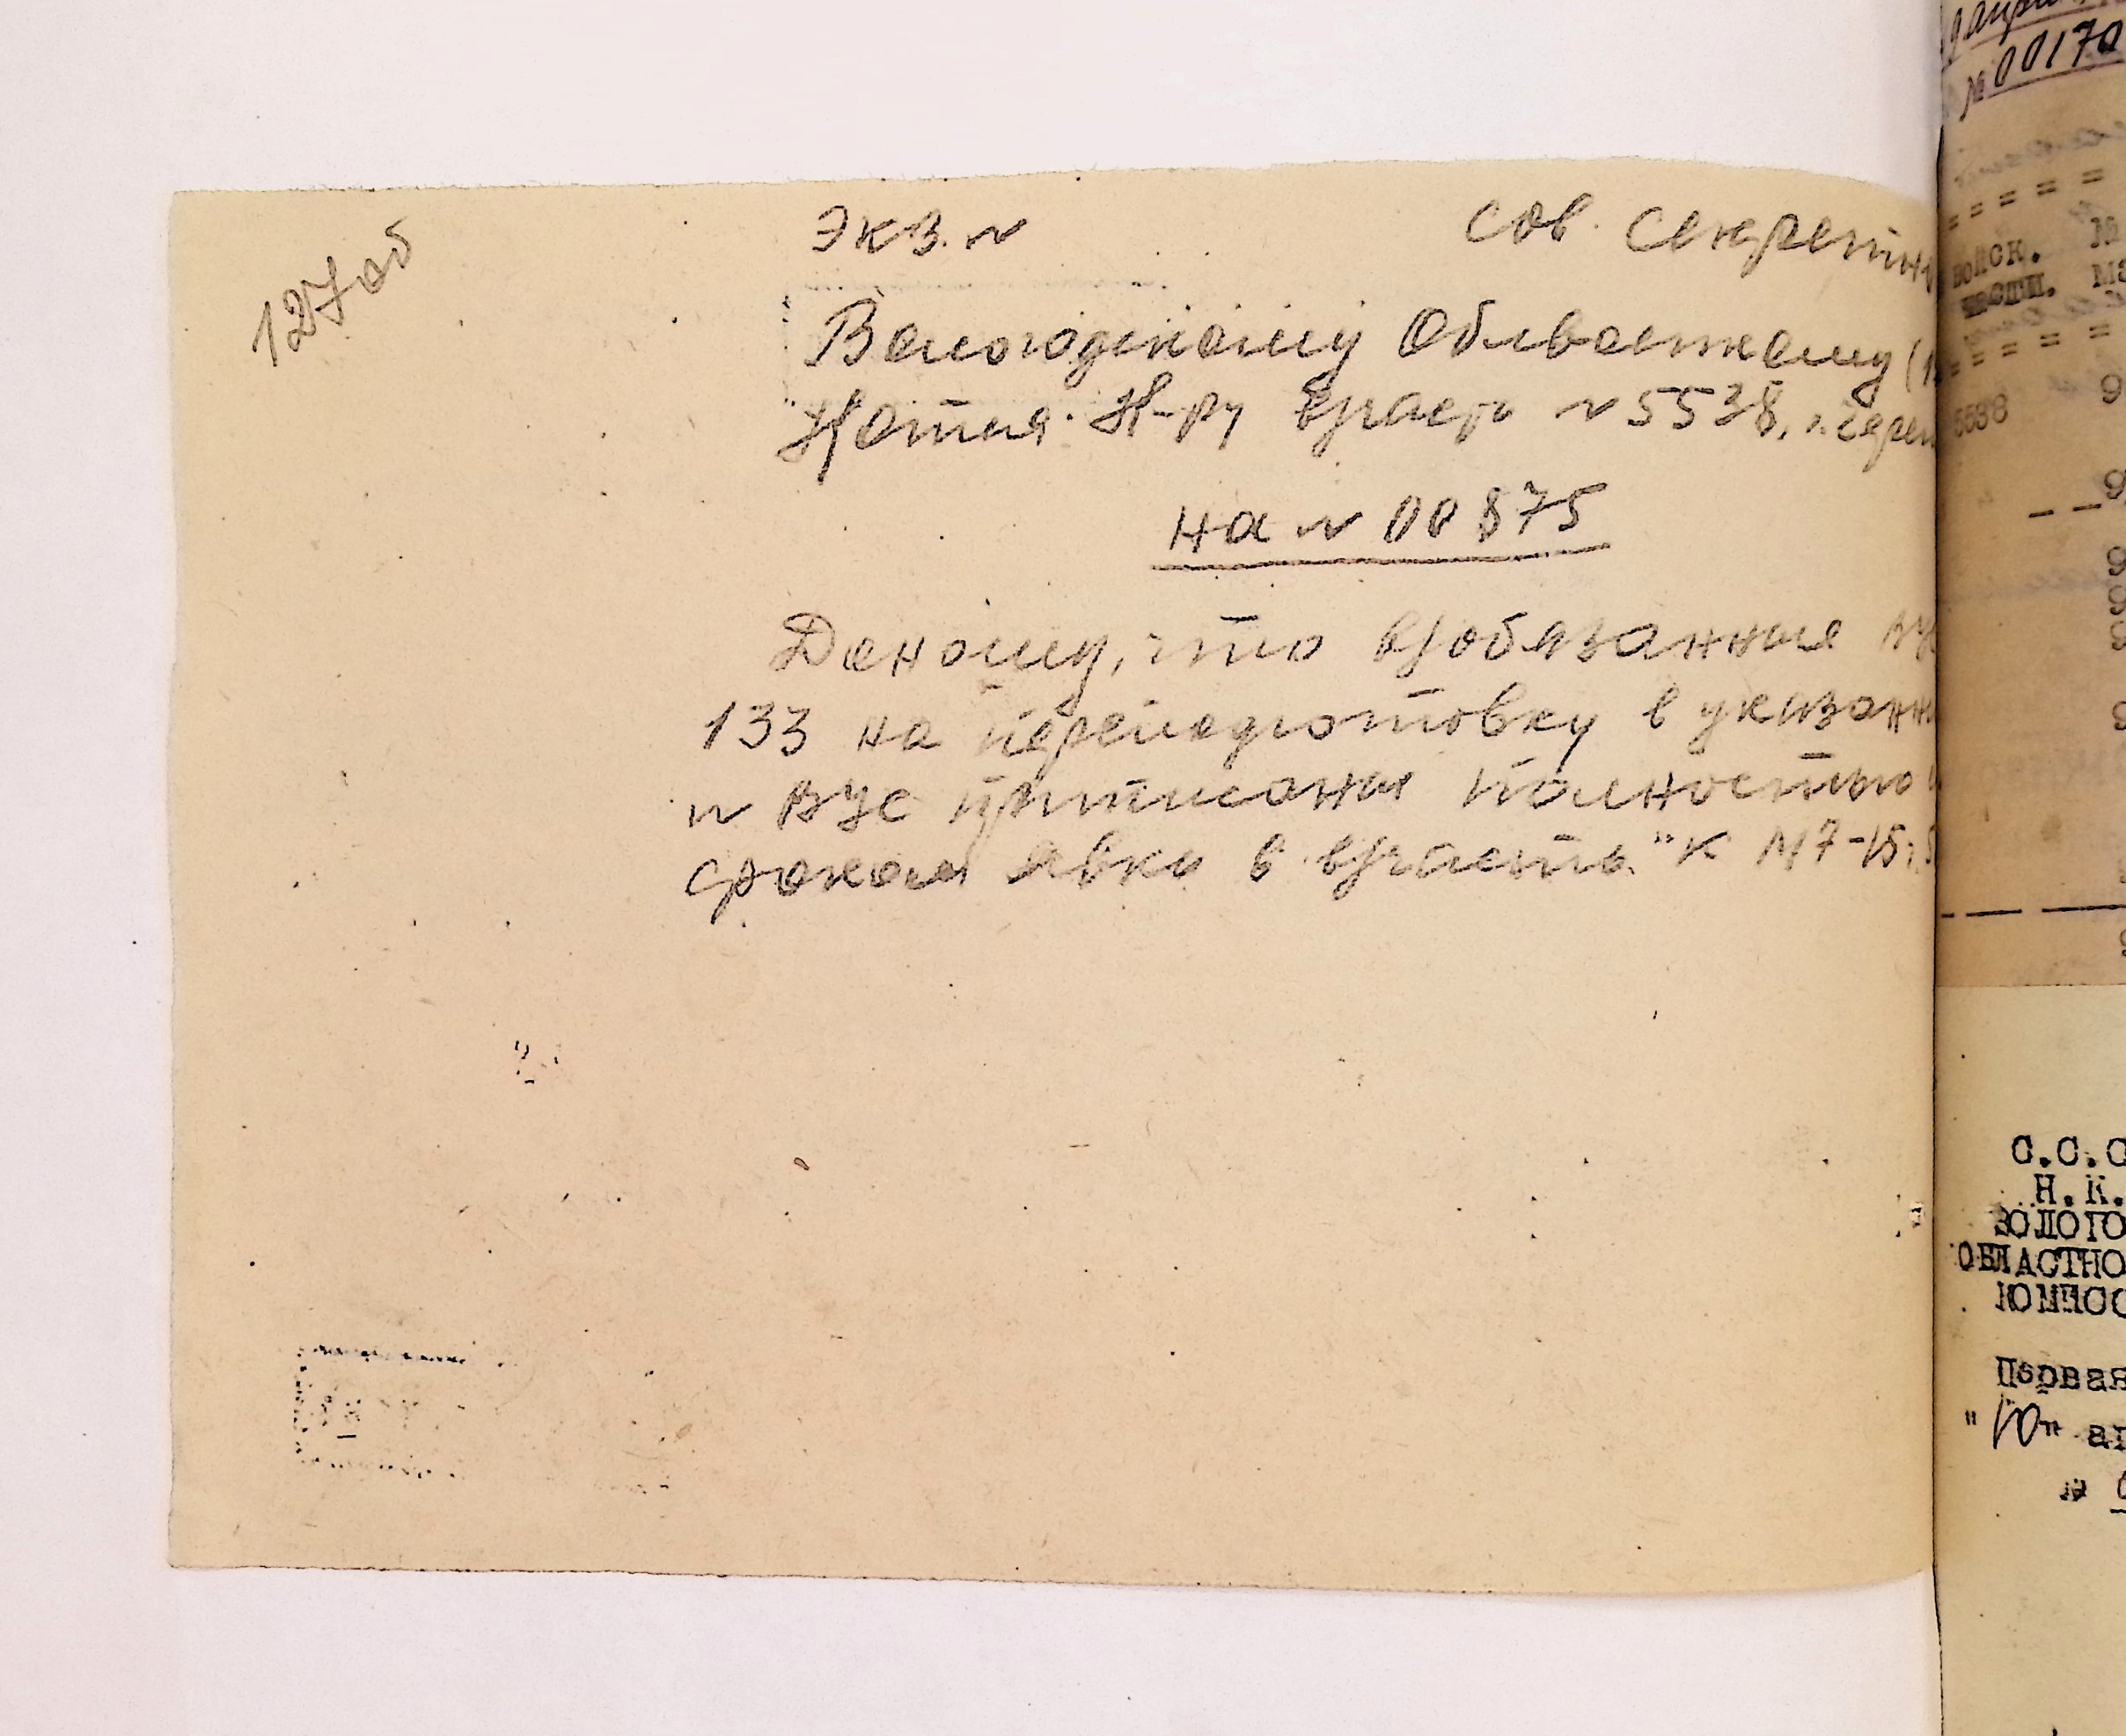 127об
Экз. №
Сов. Секретн
Вологодскому Облвоенкому
Копия: К-ру в/части № 5538, г. Череп
На № 00875
Доношу, что в/обязанные
133 на переподготовку в указанн
и ВУС приписаны полностью
сроком явки в в/часть "К М7-15
№ 00170
войск.
части.
5538
С.С.С
Н.К.
ВОЛОГО
ОБЛАСТНО
КОМИСС
Первая
"10" ап